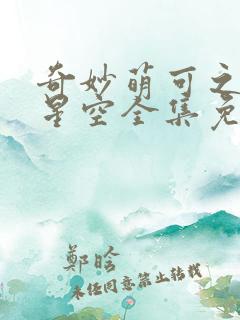 奇妙萌可之
星空全集免
鄭晗
未任同意禁止转载